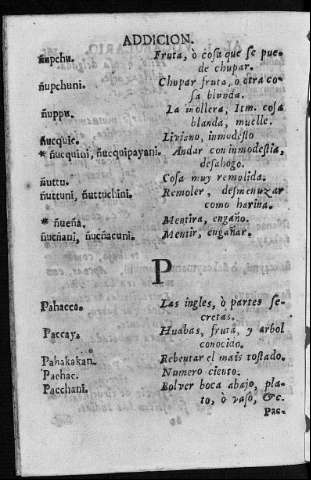 ADDICION.
ñupchu. Fruta, ò cosa que se pue-
de chupar.
ñupchuni. Chupar fruta, o otra co-
sa blanda.
ñuppu. La mollera, Itm. cosa
blanda, muelle.
ñucquie. Liviano, inmodesto
* ñucquini, ñucquipayani. Andar con inmodestia,
desahogo.
ñuttu. Cosa muy remolida.
ñuttuni, ñuttuchini. Remoler, desmenuzar
como harina.
* ñueña. Mentira, engaño.
ñueñani, ñueñacuni. Mentir, engañar.
P
Pahacca. Las ingles, ò partes se-
cretas.
Paccay. Huabas, fruta, y arbol
conocido.
Pahakakan. Rebentar el mais tostado.
Pachac. Numero ciento.
Pacchani. Bolver boca abajo, pla-
to, ò vaso, &c.
Pac-